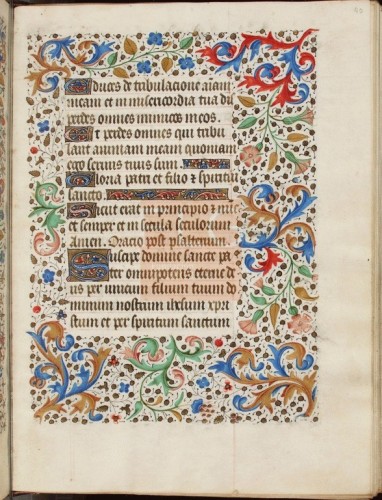 Educes de tribulacione aiam
meam et in misericordia tua dis
perdes omnes inimicos meos.
Et perdes omnes qui tribu
lant animam meam quoniam
ego servus tuus sum.
Gloria patri et filio et spiritui
sancto.
Sicut erat in principio et nunc
et semper et in secula seculorum
amen. Oracio post psalterium.
Suscipe domine sancte pa
ter omnipotens eterne de
us per unicum filium tuum do
minum nostrum ihesum xpri
stum et per spiritum sanctum